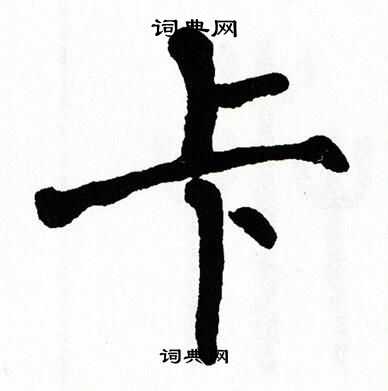 词典网
卡
词典网